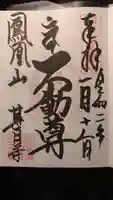 奉拝
令和二年
一月十一日
不動尊
鳳凰山
甚目寺